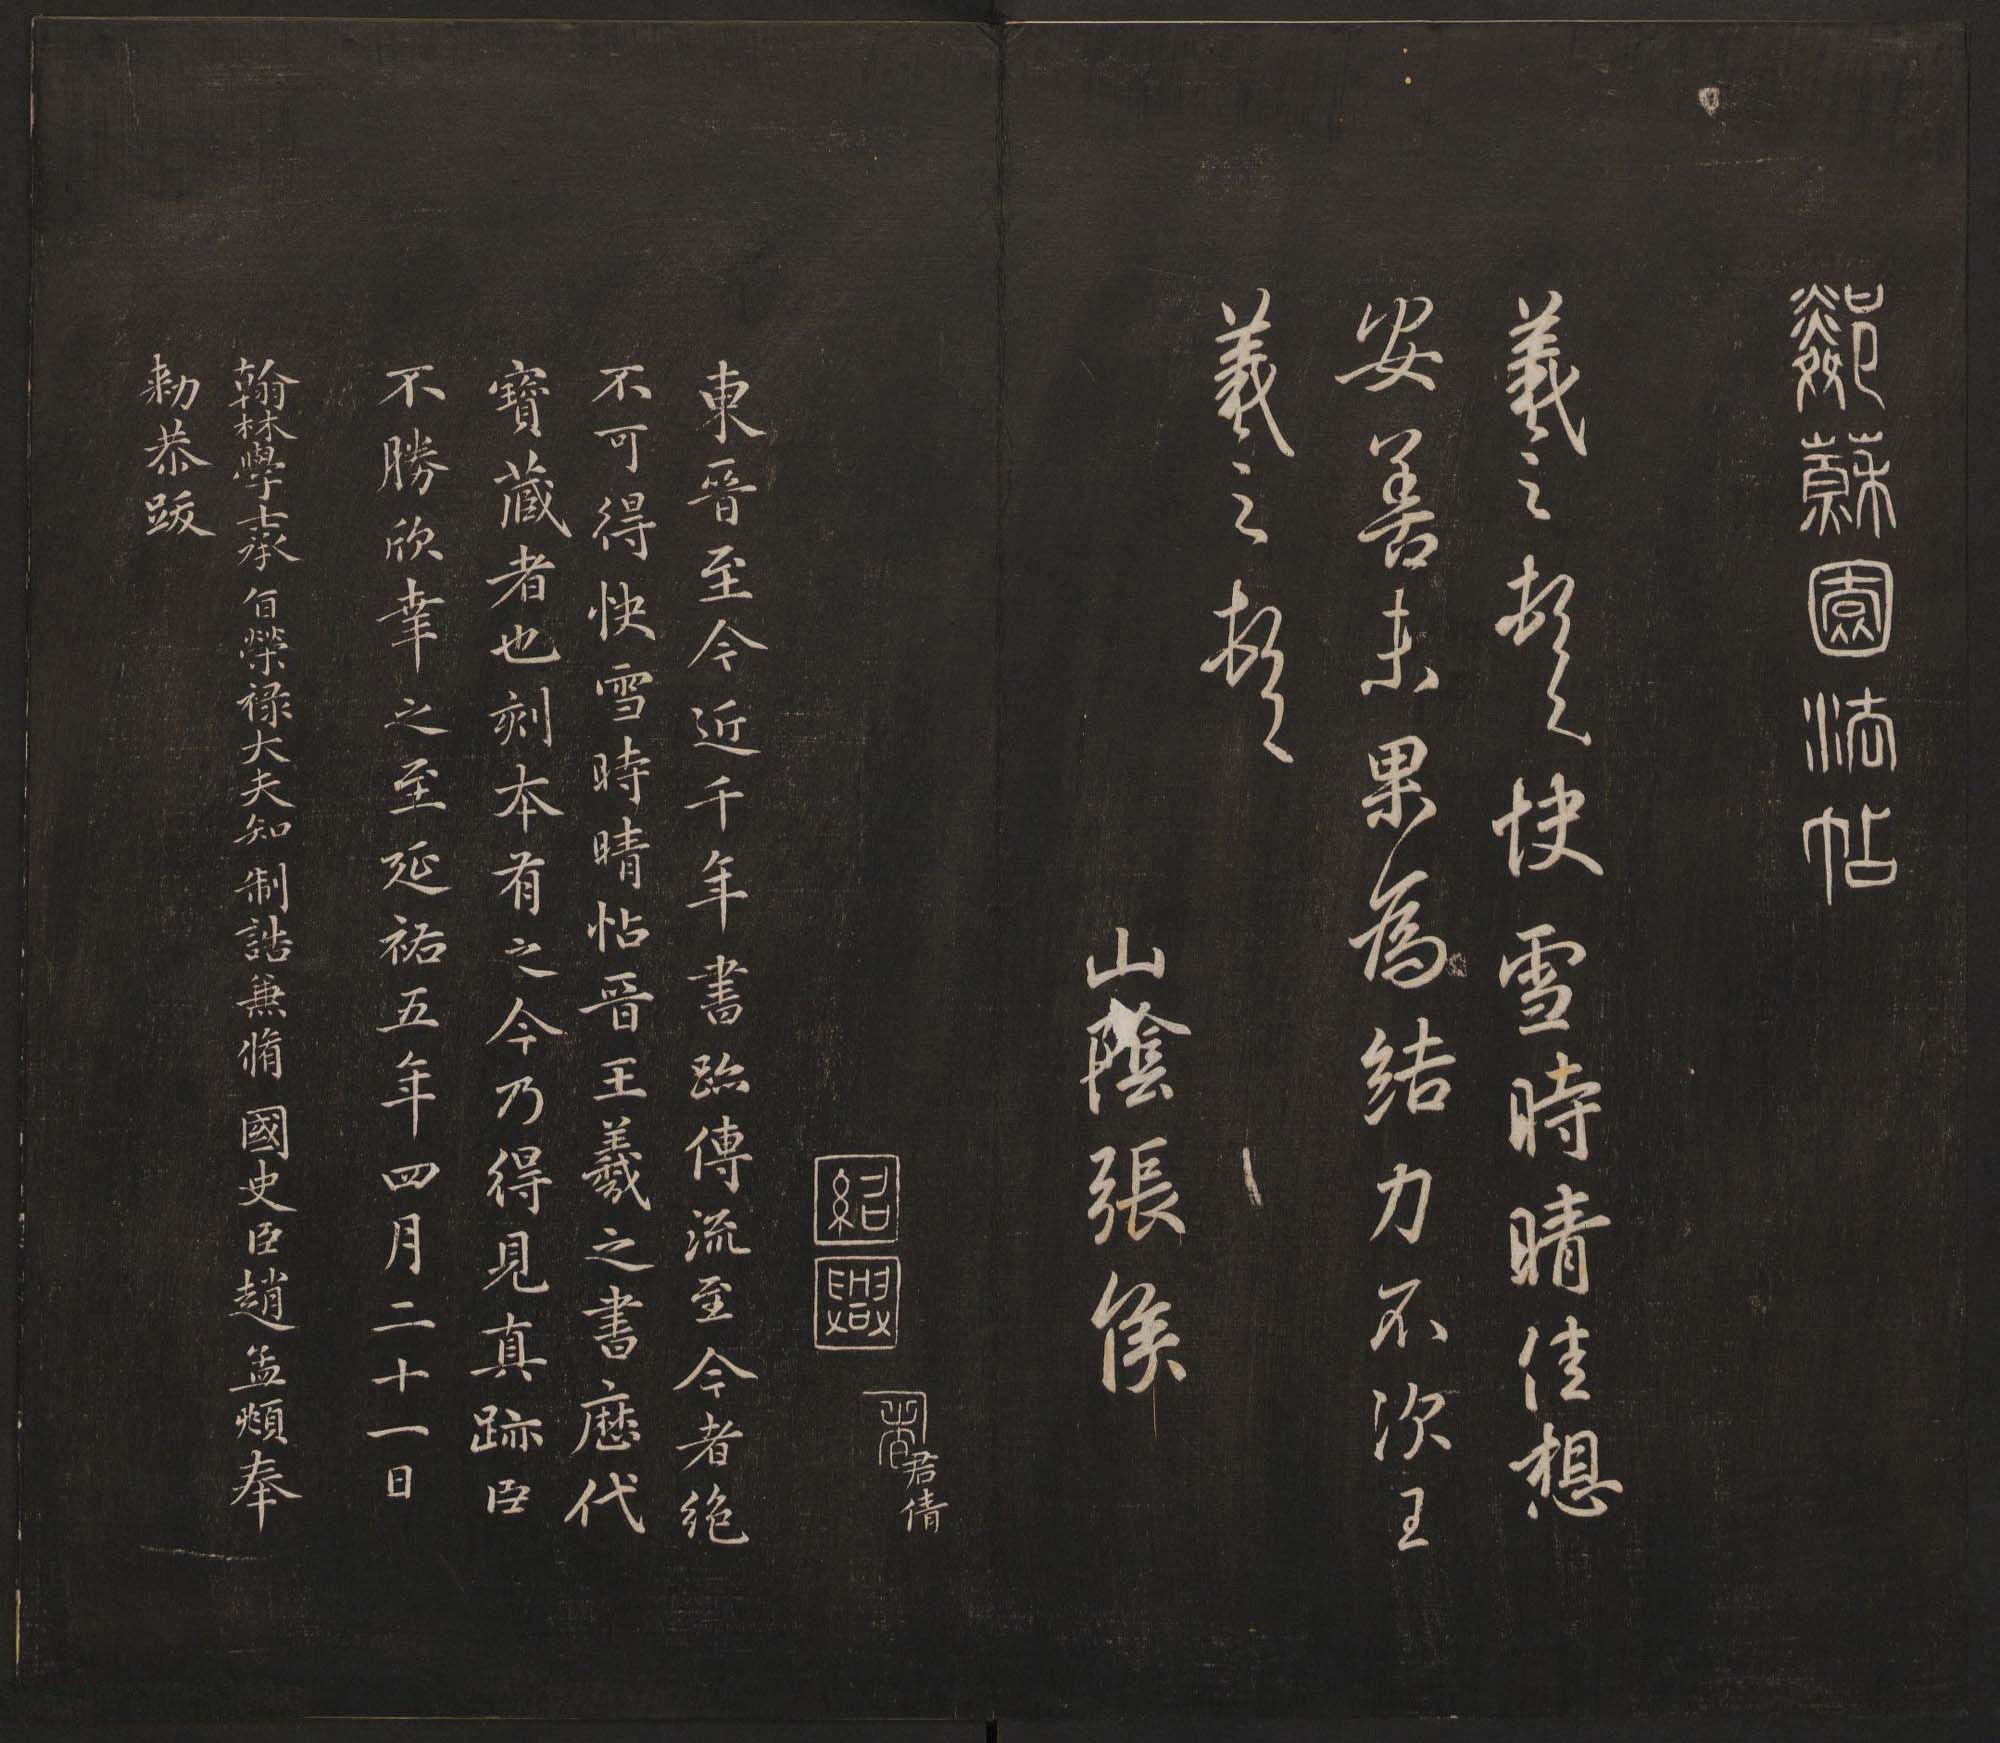 鄰蘇園法帖
羲之頓首快雪時晴佳想
安善未果為結力不次王
羲之頓首
山陰張侯
紹興
君倩
東晉至今近千年書跡傳流至今者絕
不可得快雪時晴帖晉王羲之書歷代
寶藏者也刻本有之今乃得見真跡臣
不勝欣幸之至延祐五年四月二十一日
翰林學士承旨榮祿大夫知制誥兼脩國史臣趙孟頫奉
勑恭跋